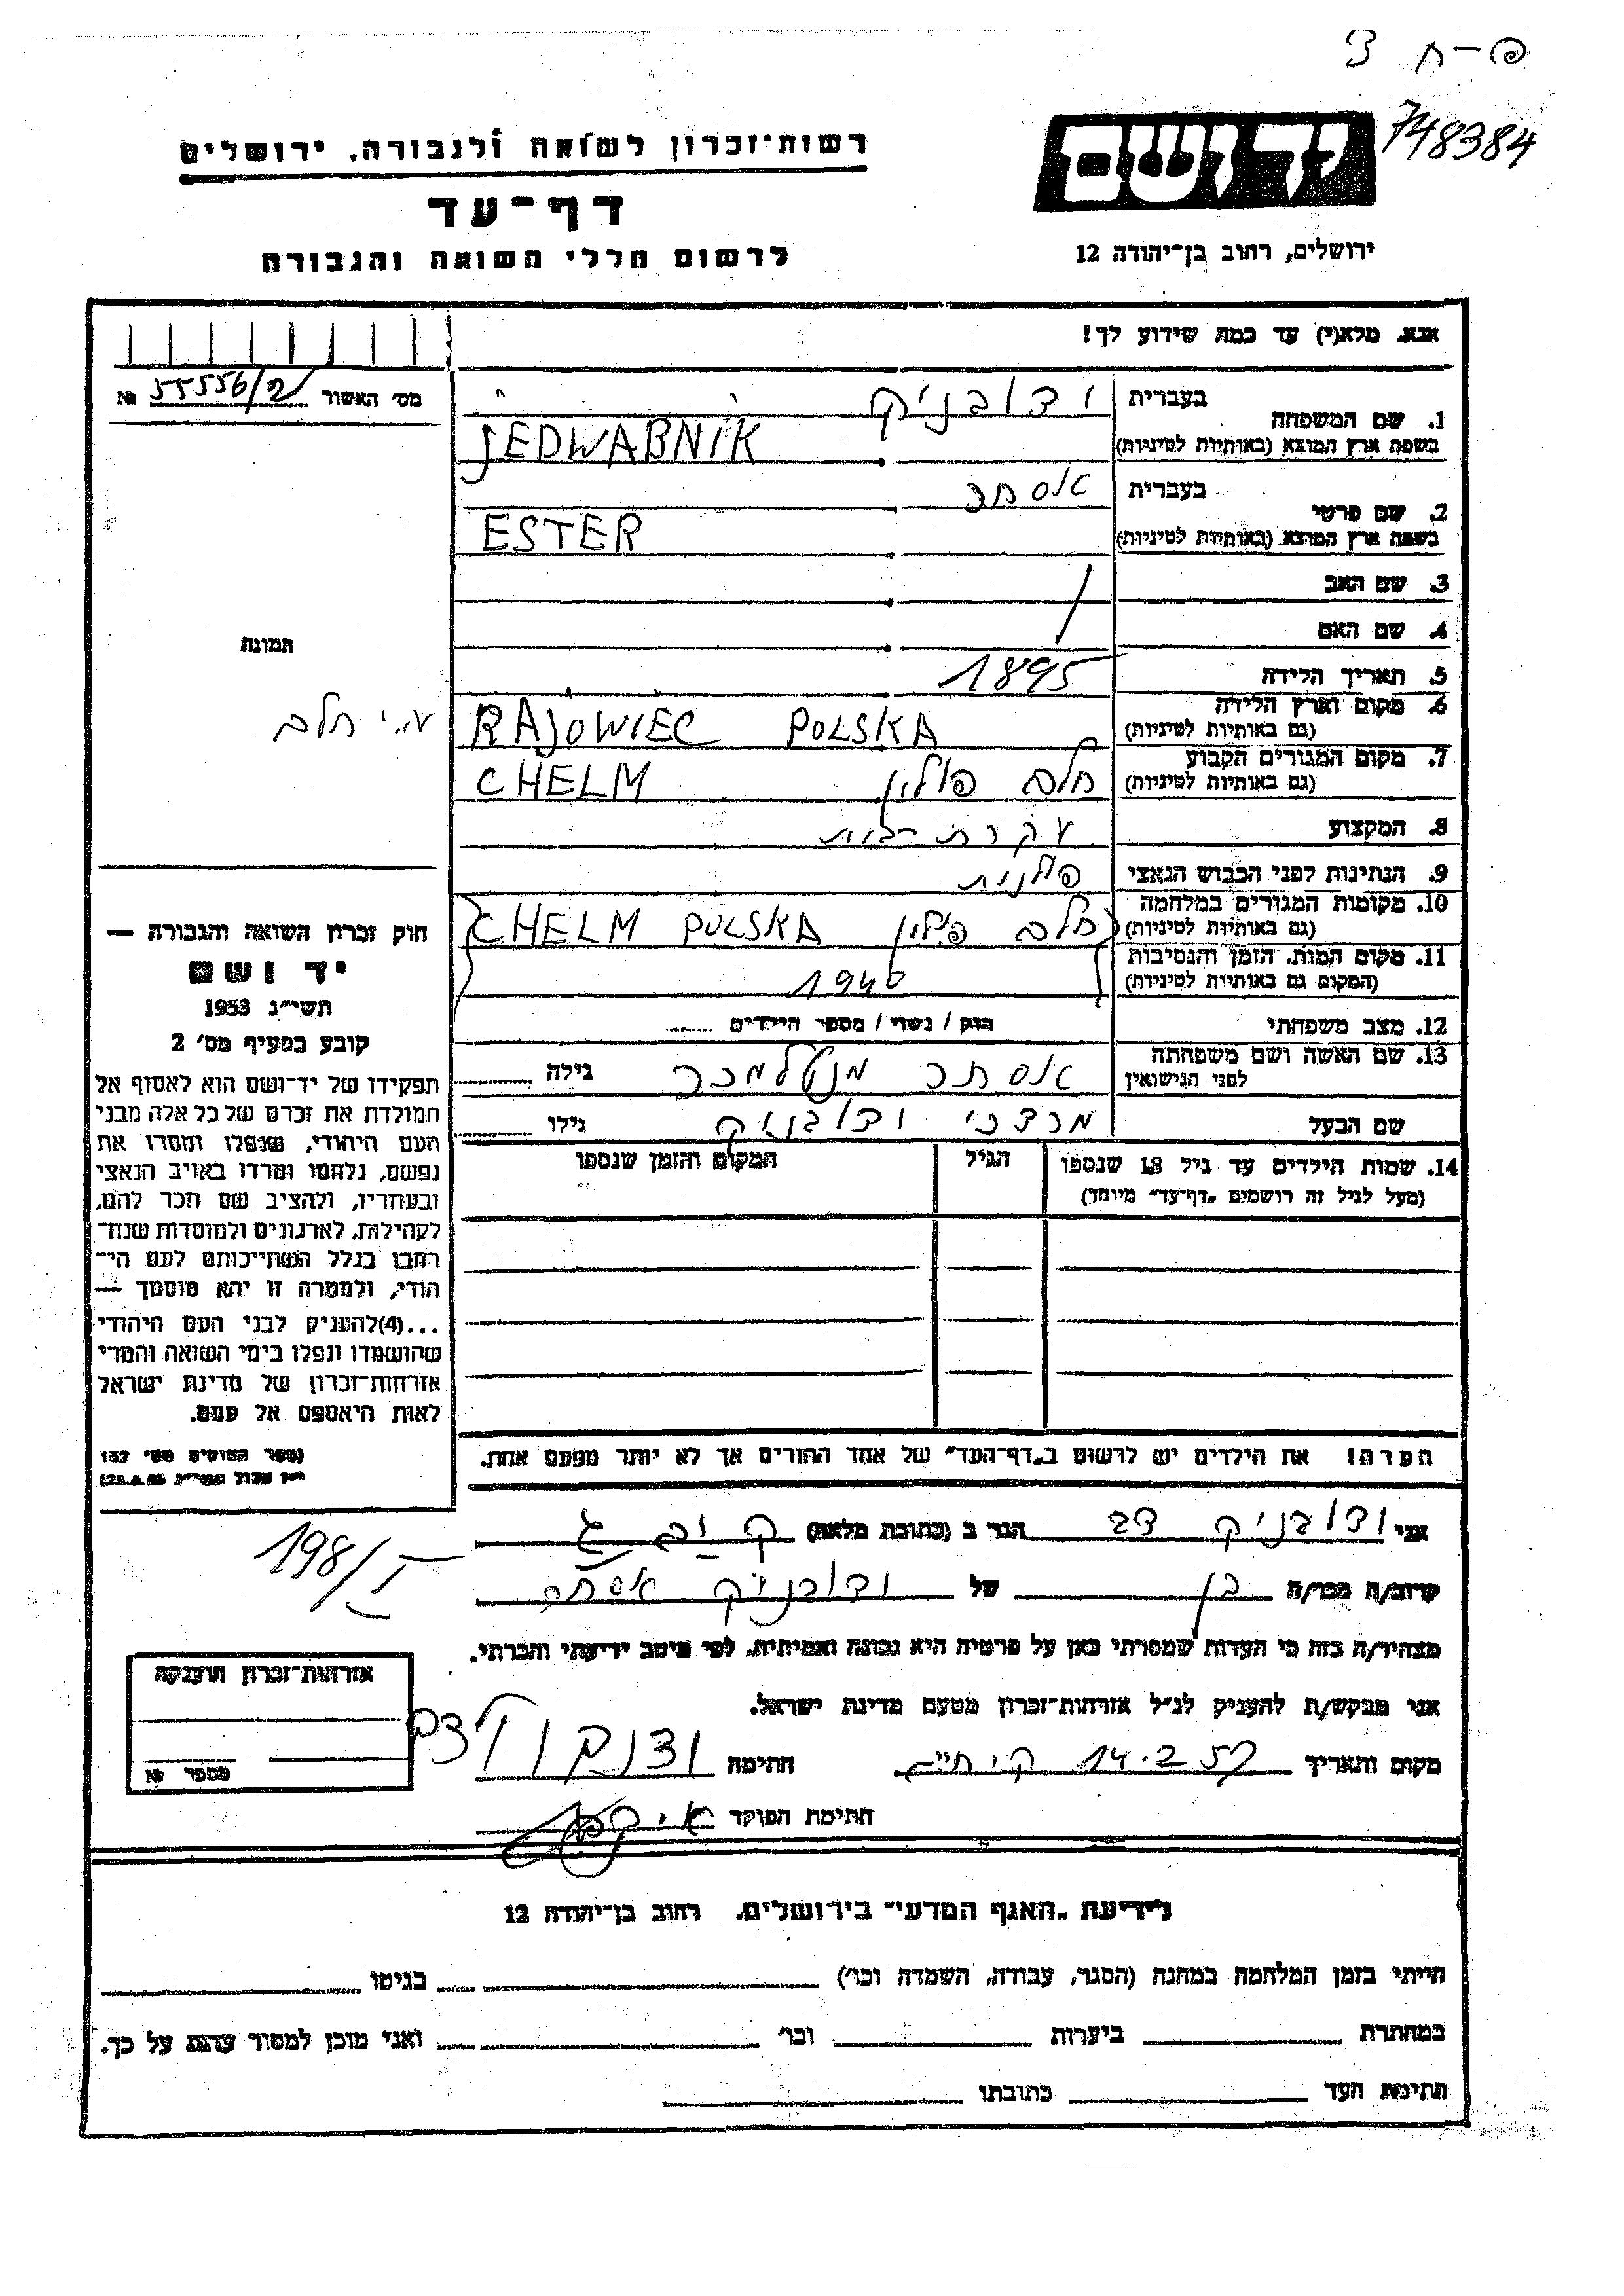 פ-ח 3
748384
יד ושם
רשות-זכרון לשואה ולגבורה, ירושלים
דף-עד
לרשום חללי השואה והגבורה
ירושלים, רחוב בן-יהודה 12
אנא, מלא(י) עד כמה שידוע לך!
מס' האשור 55556/2 №
1. שם המשפחה
בעברית
בשפת ארץ המוצא (באותיות לטיניות)
JEDWABNIK
2. שם פרטי
בעברית אסתר
בשפת ארץ המוצא (באותיות לטיניות)
ESTER
3. שם האב
4. שם האם
תמונה
5. תאריך הלידה 1895
6. מקום וארץ הלידה
(גם באותיות לטיניות)
RAJOWIEC POLSKA
7. מקום המגורים הקבוע
(גם באותיות לטיניות)
חלם פולין CHELM
8. המקצוע עקרת בית
9. הנתינות לפני הכבוש הנאצי פולנית
10. מקומות המגורים במלחמה
(גם באותיות לטיניות)
חלם פולין CHELM POLSKA
11. מקום המות, הזמן והנסיבות
(המקום גם באותיות לטיניות)
1940
12. מצב משפחתי רווק / נשוי / מספר הילדים
13. שם האשה ושם משפחתה
לפני הנישואין
אסתר גילה
שם הבעל מרדכי ידובניק גילו
14. שמות הילדים עד גיל 18 שנספו
(מעל לגיל זה רושמים „דף-עד" מיוחד)
הגיל
המקום והזמן שנספו
הערה! את הילדים יש לרשום ב„דף-העד" של אחד ההורים אך לא יותר מפעם אחת.
חוק זכרון השואה והגבורה —
יד ושם
תשי"ג 1953
קובע בסעיף מס' 2
תפקידו של יד-ושם הוא לאסוף אל
המולדת את זכרם של כל אלה מבני
העם היהודי, שנפלו ומסרו את
נפשם, נלחמו ומרדו באויב הנאצי
ובעוזריו, ולהציב שם וזכר להם,
לקהילות, לארגונים ולמוסדות שנח-
רבו בגלל השתייכותם לעם הי-
הודי, ולמטרה זו יהא מוסמך —
...(4)להעניק לבני העם היהודי
שהושמדו ונפלו בימי השואה והמרי
אזרחות-זכרון של מדינת ישראל
לאות היאספם אל עמם.
(ספר החוקים מס' 132
198/I
אני ידובניק הגר ב (כתובת מלאה)
קרוב/ה מכר/ה בן של ידובניק אסתר
מצהיר/ה בזה כי העדות שמסרתי כאן על פרטיה היא נכונה ואמיתית, לפי מיטב ידיעתי והכרתי.
אני מבקש/ת להעניק לנ"ל אזרחות-זכרון מטעם מדינת ישראל.
מקום ותאריך 14.2.57 חתימה
חתימת הפוקד
אזרחות-זכרון הוענקה
מספר №
לידיעת „האגף המדעי" בירושלים, רחוב בן-יהודה 12
הייתי בזמן המלחמה במחנה (הסגר, עבודה, השמדה וכו') בגיטו
במחתרת ביערות וכו' ואני מוכן למסור עדות על כך.
חתימת העד כתובתו